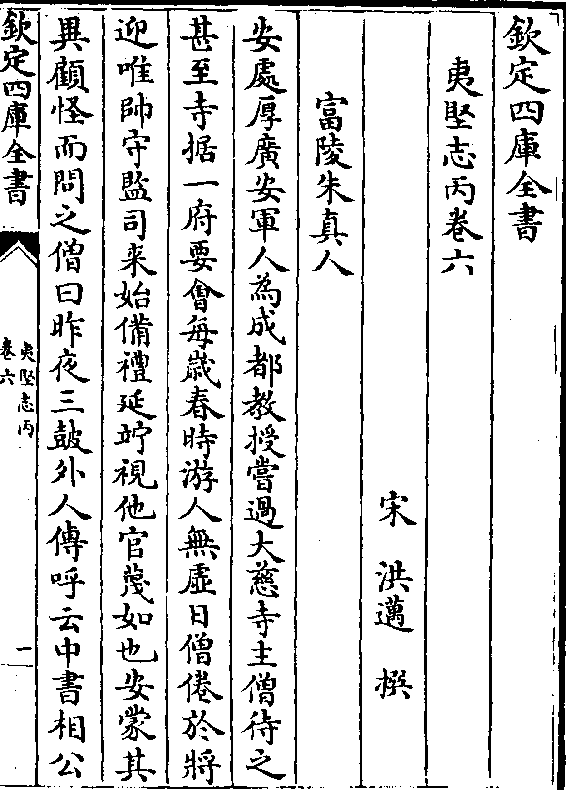 欽定四庫全書
夷堅志丙卷六
宋 洪邁 撰
富陵朱真人
安處厚廣安軍人為成都教授嘗過大慈寺主僧待之
甚至寺据一府要會每歲春時游人無虛日僧倦於將
迎唯帥守監司来始備禮延竚視他官蔑如也安蒙其
異顧怪而問之僧曰昨夜三鼓外人傳呼云中書相公
欽定四庫全書
夷堅志丙
卷六
一